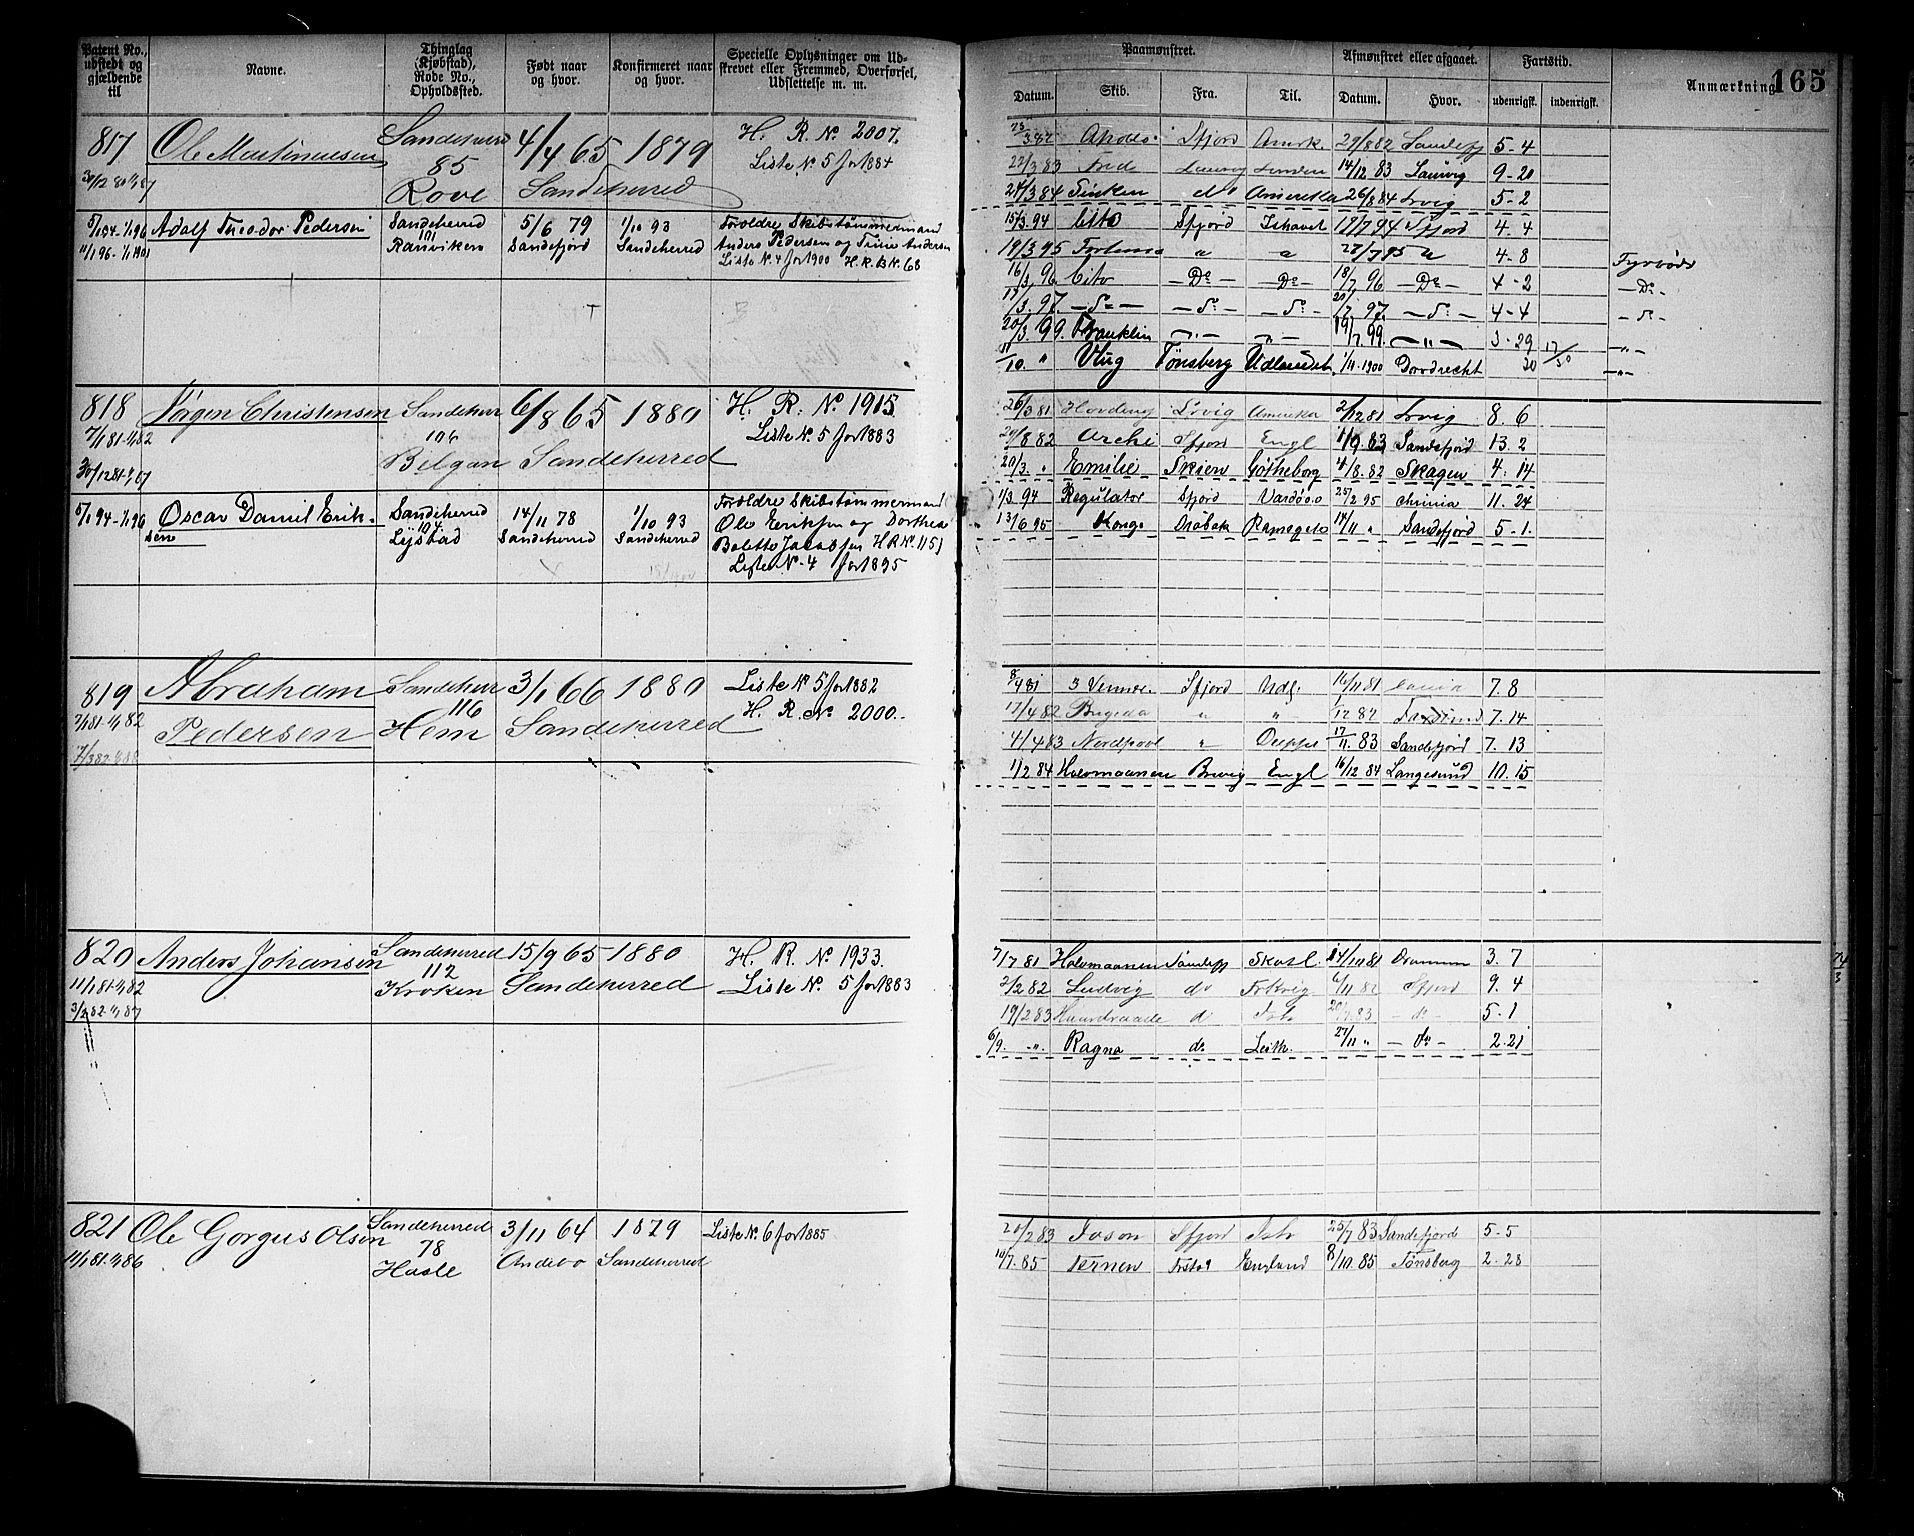 Patent No.,
udstedt og
gjældende
til
Navne.
Thinglag
(Kjøbstad),
Rode No.,
Opholdssted.
Født naar
og hvor.
Konfirmeret naar
og hvor.
Specielle Oplysninger om Ud-
skrevet eller Fremmed, Overførsel,
Udslettelse m. m.
Paamønstret.
Datum.
Skib.
Fra.
Til.
Afmønstret eller afgaaet.
Datum.
Hvor.
Fartstid.
udenrigsk.
indenrigsk.
Anmærkning.
165
817 Ole Martinusen Sandeherred 4/4 65 1879 H. R. No 2007.
85 Liste No 5 for 1884
Rove Sandeherred
28/8 82
22/3 83 14/12 83 Laurvig 9-20
24/3 84 Tinken do Amerika 26/8 84 Lrvig 5-2
5/1 94-1/1 96 Adolf Theodor Pedersen Sandeherred 5/6 79 1/10 93 Forældre Skibstømmermand
11/1 96-1/1 1901 101 Ranviken Sandefjord Sandeherred Anders Pedersen og Trine Andersen
Liste No 4 for 1900 H. R. B No. 68
15/3 94 Cito Sfjord Ishavet 17/7 94 Sfjord 4-4
19/3 95 Fortuna " " 4-8 Fyrbøder
16/3 96 Cito - Do - - Do - 18/7 96 - Do - 4-2 - Do -
17/3 97 - Do - - Do - - Do - 20/7 97 - Do - 4-4 - Do -
20/3 99. Franklin - " - - " - 19/7 99. - " - 3-29 - " -
11/10 " Vlug Tønsberg Udlandet 1/11 1900 Dordrecht 30 17/30 - " -
818 Jørgen Christensen Sandeherr 6/8 65 1880 H. R. No 1915
7/1 81-1/1 82 106 Liste No 5 for 1883
30/12 81-1/1 87 Bilgan Sandeherred
26/3 81 Lrvig Amerika 2/12 81 Lrvig 8. 6
20/8 82 Archi Sfjord Engl 1/9 83 Sandefjord 13. 2
20/3. " Emilie Skien Götheborg 4/8. 82 Skagen 4. 14
5/1 94-1/1 96 Oscar Daniel Erik- Sandeherred 14/11 78 1/10 93 Forældre Skibstømmermand
sen 104 Lystad Sandeherred Sandeherred Ole Eriksen og Dorthea
Bolette Jacobsen H R No 1151
Liste No 4 for 1895
1/3. 94 Regulator Sfjord Vardø 25/2 95 11. 24
13/6 95 Kong Drøbak Ramsgate 14/11 " Sandefjord 5-1.
819 Abraham Sandeherr 3/1 66 1880 Liste No 5 for 1882
7/1 81-1/1 82 Pedersen 116 Hem Sandeherred H. R. No 2000.
7/3 82-1/1 88
8/4 81 3 Venner Sfjord Udl. 16/11 81 7. 8
17/4 82 " " 7. 14
4/4 83 Nordpool " Dieppe 17/11. 83 Sandefjord 7. 13
1/2 84 Havmaanen Brevig Engl 16/12 84 Langesund 10. 15
820 Anders Johansen Sandeherred 15/9 65 1880 H. R. No 1933.
11/1 81-1/1 82 112 Liste No 5 for 1883
3/2 82-1/1 87 Kroken Sandeherred
7/7 81 Havmaanen Sandefj Skotl. 14/11 81 Drammen 3. 7
3/2 82 Ludvig do 6/11 82 Sfjord 9. 4
19/2 83 do - do - 5-1
6/9. " Ragna do Leith. 27/11 " - do - 2. 21
821 Ole Gorgus Olsen Sandeherred 3/11 64 1879 Liste No 6 for 1885
11/1 81-1/1 86 78 Hasle Andebo Sandeherred
20/2 83 Jason Sfjord 25/7 83 Sandefjord 5-5
10/7. 85 Ternen England 8/10. 85 Tønsberg 2. 28